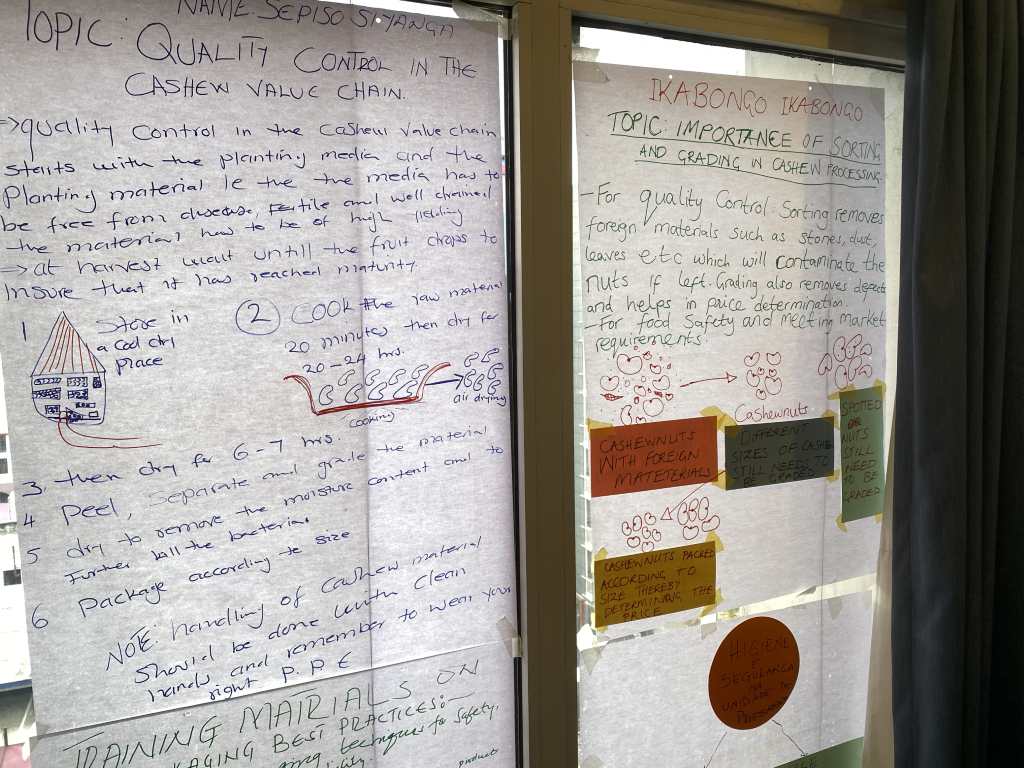 NAME: SEPISO SIYANGA
TOPIC: QUALITY CONTROL IN THE
CASHEW VALUE CHAIN.
→ quality Control in the cashew value chain
starts with the planting media and the
Planting material Ie the the media has to
be free from disease, fertile and well drained
the material has to be of high yielding
→ at harvest wait untill the fruit drops to
Insure that it has reached maturity.
1 Store in
a cool dry
place
2 COOK the raw material
20 minutes then dry for
20-24 hrs.
cooking
air drying
3. then dry for 6-7 hrs.
4 Peel, separate and grade the material
5 dry to remove the moisture content and to
Further kill the bacteria.
6 Package according to size
NOTE: handling of cashew material
Should be done with clean
hands and remember to wear your
right P.P.E
TRAINING MATRIAL S ON
AGING BEST PRACTICES:
techniques for safety,
products
IKABONGO IKABONGO
TOPIC: IMPORTANCE OF SORTING
AND GRADING IN CASHEW PROCESSING
- For quality Control. Sorting removes
foreign materials such as stones, dust,
leaves etc which will contaminate the
nuts if left. Grading also removes defects
and helps in price determination.
- For food Safety and meeting market
requirements.
CASHEWNUTS
WITH FOREIGN
MATETERIALS
Cashewnuts
DIFFERENT
SIZES OF CASHEW
STILL NEED TO
BE GRADED
SPOTTED
OR
NUTS
STILL
NEED
TO BE
GRADED
CASHEWNUTS PACKED
ACCORDING TO
SIZE THEREBY
DETERMINING THE
PRICE
HIGIENE
E
SEGURANCA
NA
UNIDADE DE